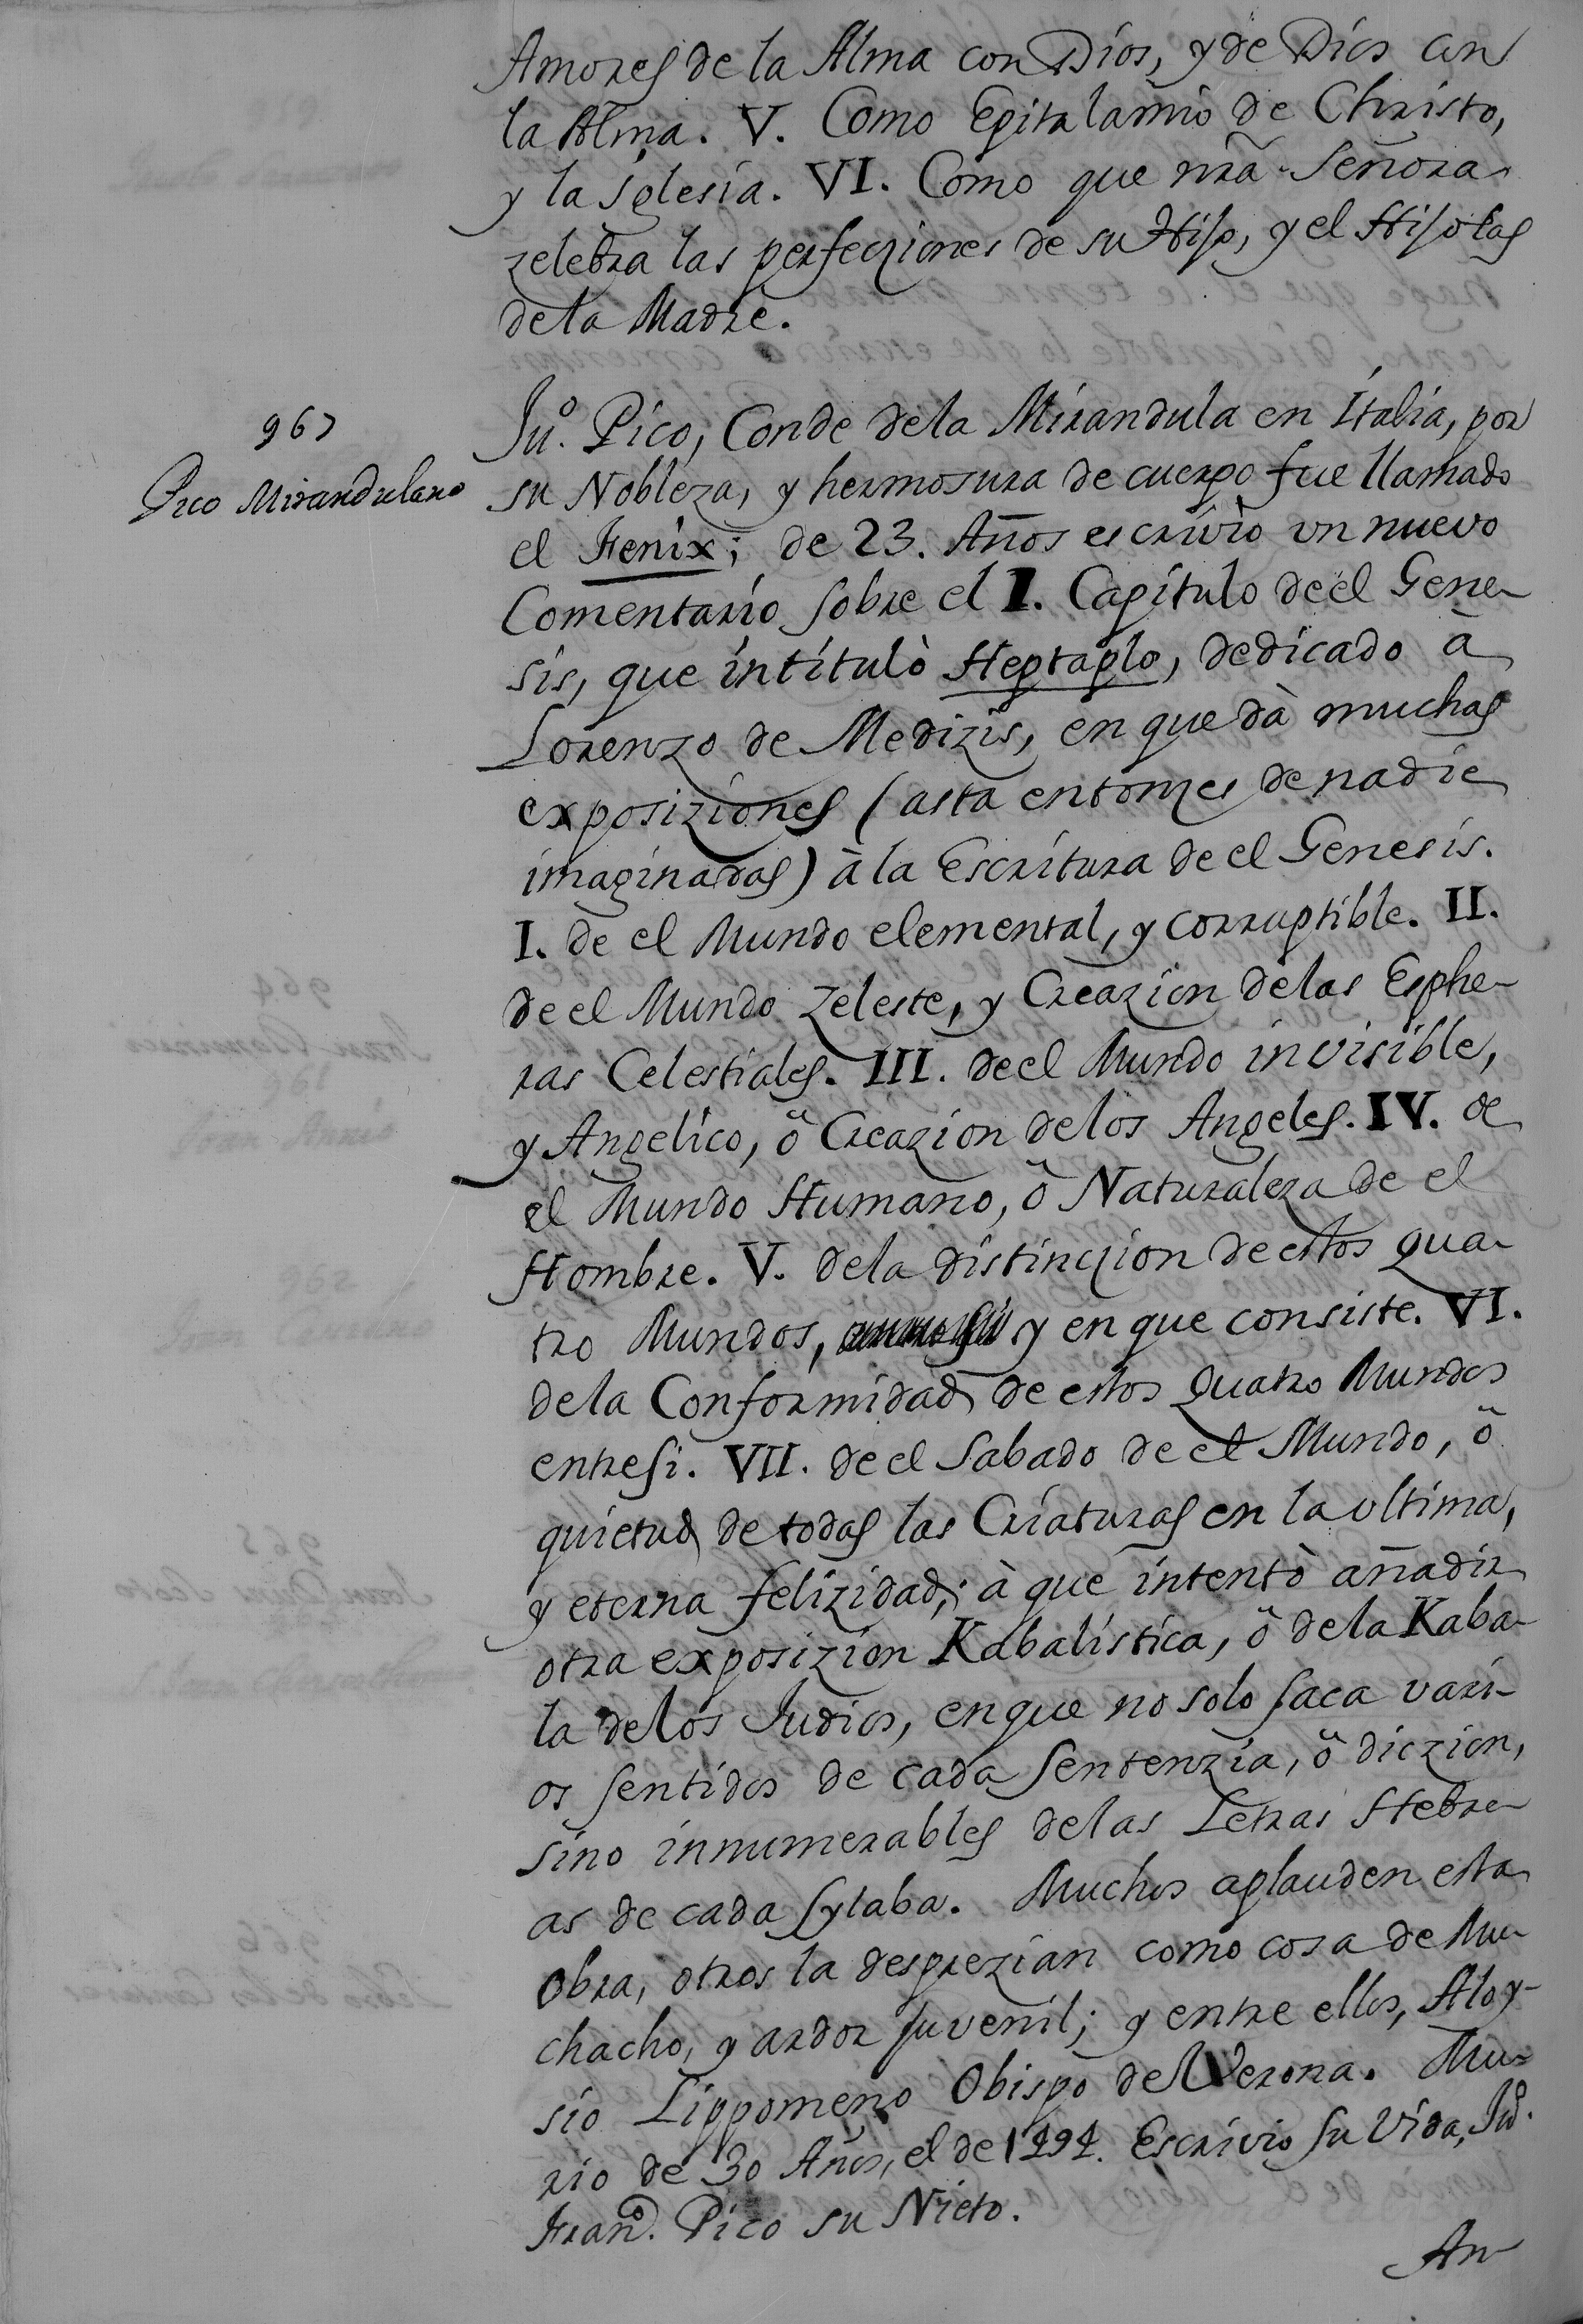 Amores de la Alma con Dios, y de Dios con
la Alma. V. Como Epitalamio de Christo,
y la Iglesia. VI. Como que nrã Señora
zelebra las perfecziones de su Hijo, y el Hijo las
de la Madre.
967
Pico Mirandulano
Juº. Pico, Conde de la Mirandula en Italia, por
su Nobleza, y hermosura de cuerpo fue llamado
el Fenix; de 23. Años escrivio un nuevo
Comentario sobre el I. Capitulo de el Gene-
sis, que intitulò Heptaplo, dedicado à
Lorenzo de Medizis, en que dà muchas
exposiziones (asta entonzes de nadie
imaginadas) à la Escritura de el Genesis.
I. de el Mundo elemental, y corruptible. II.
de el Mundo Zeleste, y Creazion de las Esphe-
ras Celestiales. III. de el Mundo invisible,
y Angelico, ö Creazion de los Angeles. IV. de
el Mundo Humano, ö Naturaleza de el
Hombre. V. de la distinczion de estos qua-
tro Mundos, y en que consiste. VI.
de la Conformidad de estos Quatro Mundos
entre si. VII. de el Sabado de el Mundo, ö
quietud de todas las Criaturas en la ultima,
y eterna felizidad; à que intentò añadir
otra exposizion Kabalistica, ö de la Kaba-
la de los Judios, en que no solo saca vari-
os sentidos de cada sentenzia, ö diczion,
sino innumerables de las Letras Hebre-
as de cada sylaba. Muchos aplauden esta
Obra, otros la desprezian como cosa de Mu-
chacho, y ardor juvenil; y entre ellos, Aloy-
sio Lippomeno Obispo de Verona. Mu-
rio de 30 Años, el de 1494. Escrivio su Vida, Juº.
Franº. Pico su Nieto.
An